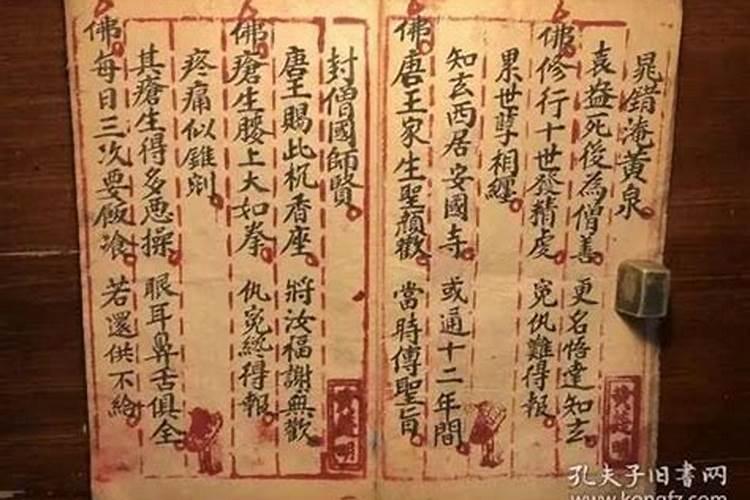 晁錯淹黄泉
袁益死後為僧善 更名悟達知玄
佛修行十世發精虔 冤仇難得報
累世孽相纏
知玄西居安國寺 或通十二年間
佛唐王家生聖顔歡 當時傳聖旨
封僧國師賢
唐王賜此杌香座 將汝福謝無歡
佛瘡生腰上大如拳 仇冤終得報
疼痛似錐剜
其瘡生得多惡操 眼耳鼻舌俱全
佛每日三次要飯飡 若還供不給
孔夫子旧书网